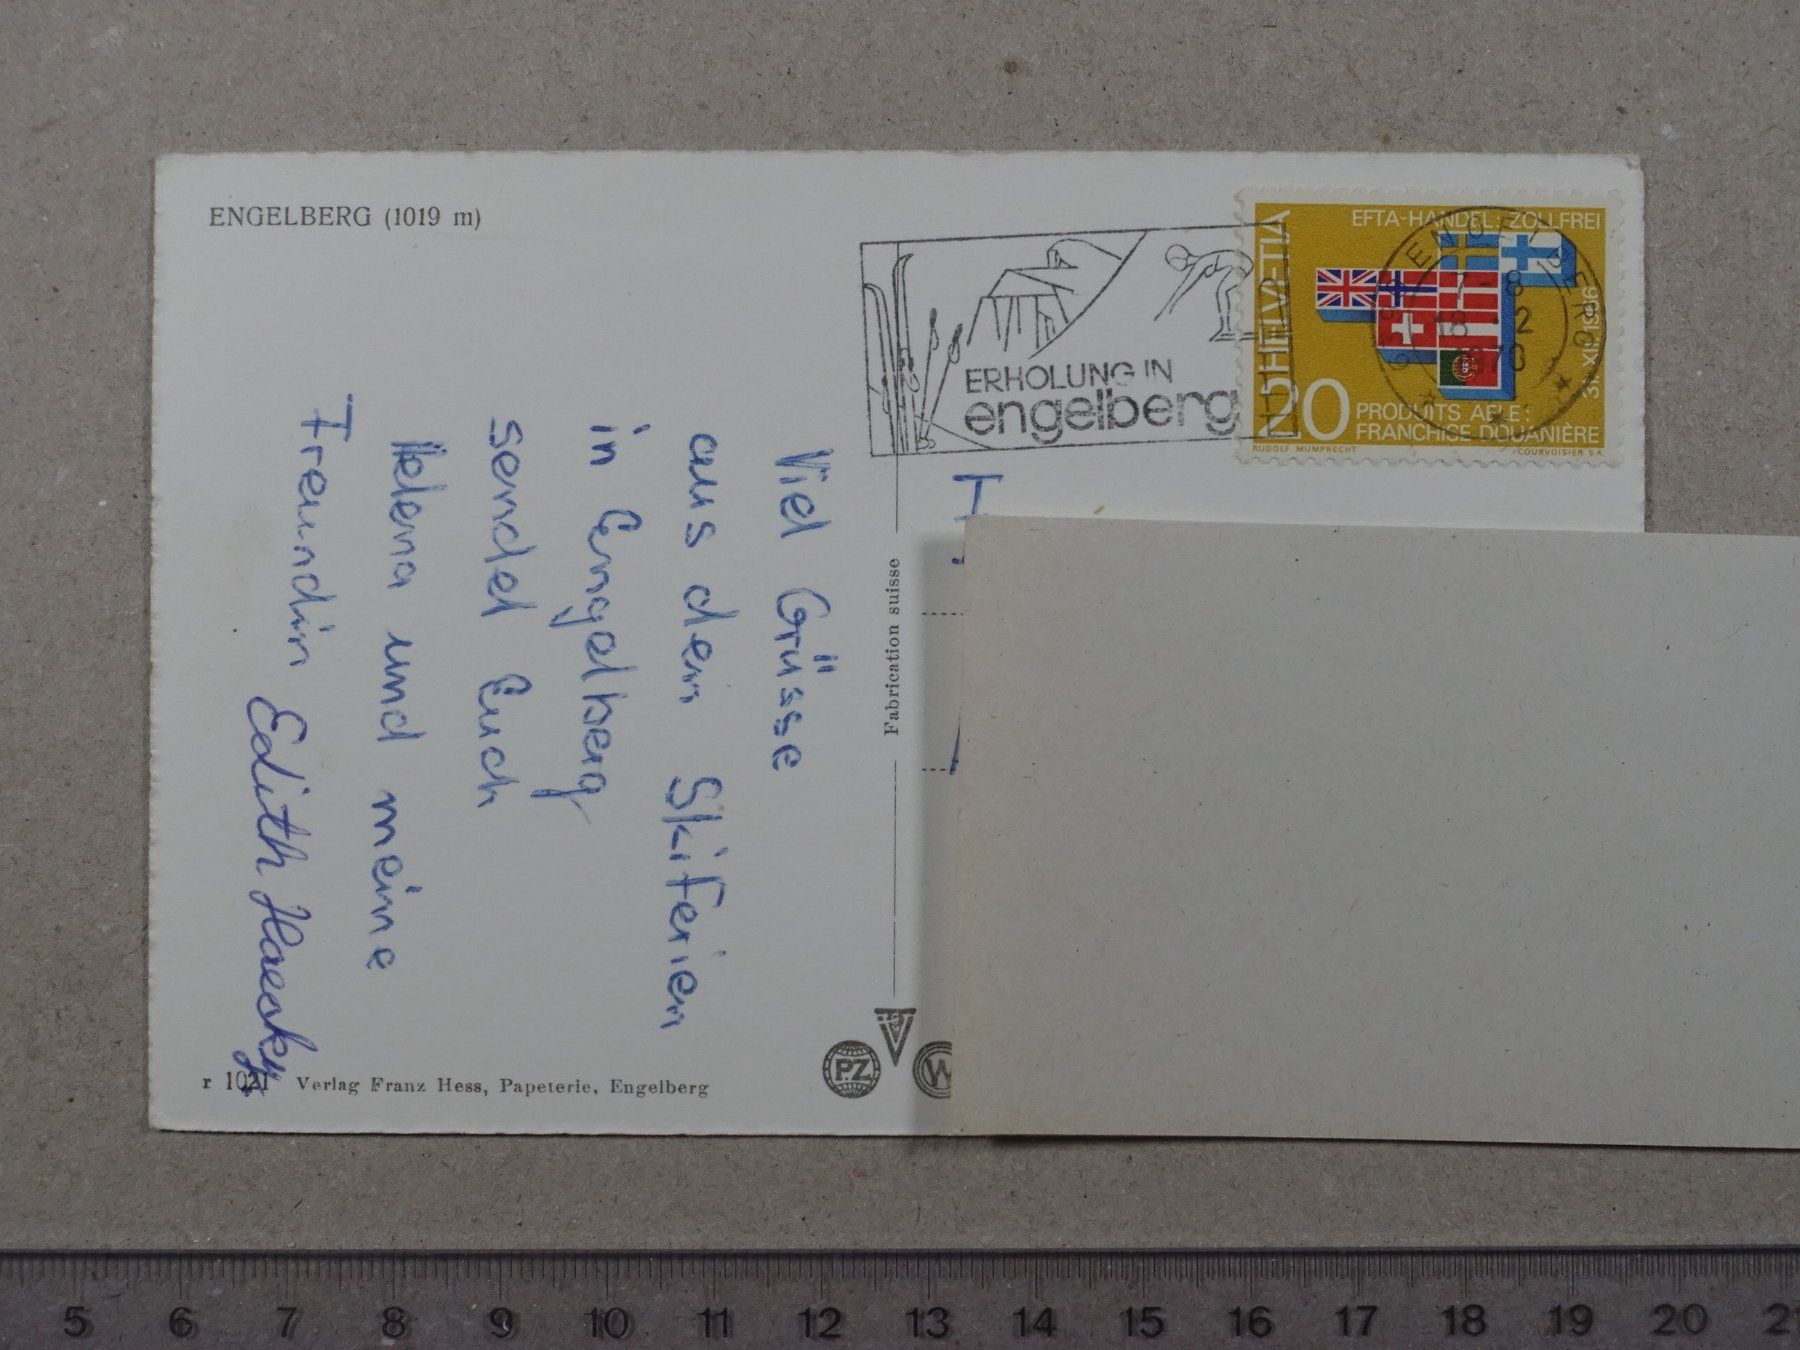 ENGELBERG (1019 m)
ERHOLUNG IN
engelberg
HELVETIA
EFTA-HANDEL: ZOLLFREI
31.XII.1966
20
PRODUITS AELE:
FRANCHISE DOUANIÈRE
RUDOLF MUMPRECHT
COURVOISIER S A
ENGELBERG
7-8
18.-2
1970
Viel Grüsse
aus den Skiferien
in Engelberg
sendet Euch
Helena und meine
Freundin Edith
Fabrication suisse
PZ
W
r 1021 Verlag Franz Hess, Papeterie, Engelberg
5 6 7 8 9 10 11 12 13 14 15 16 17 18 19 20 21